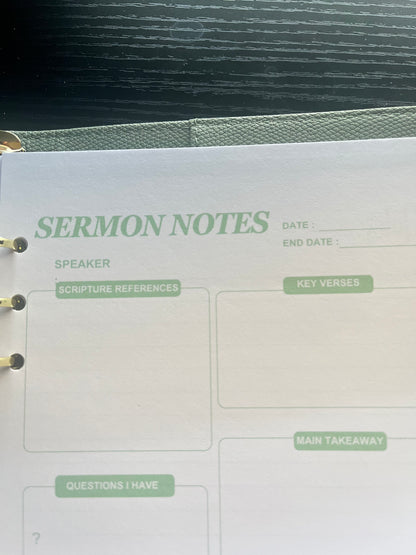 SERMON NOTES
DATE :
END DATE :
SPEAKER
:
SCRIPTURE REFERENCES
KEY VERSES
MAIN TAKEAWAY
QUESTIONS I HAVE
?